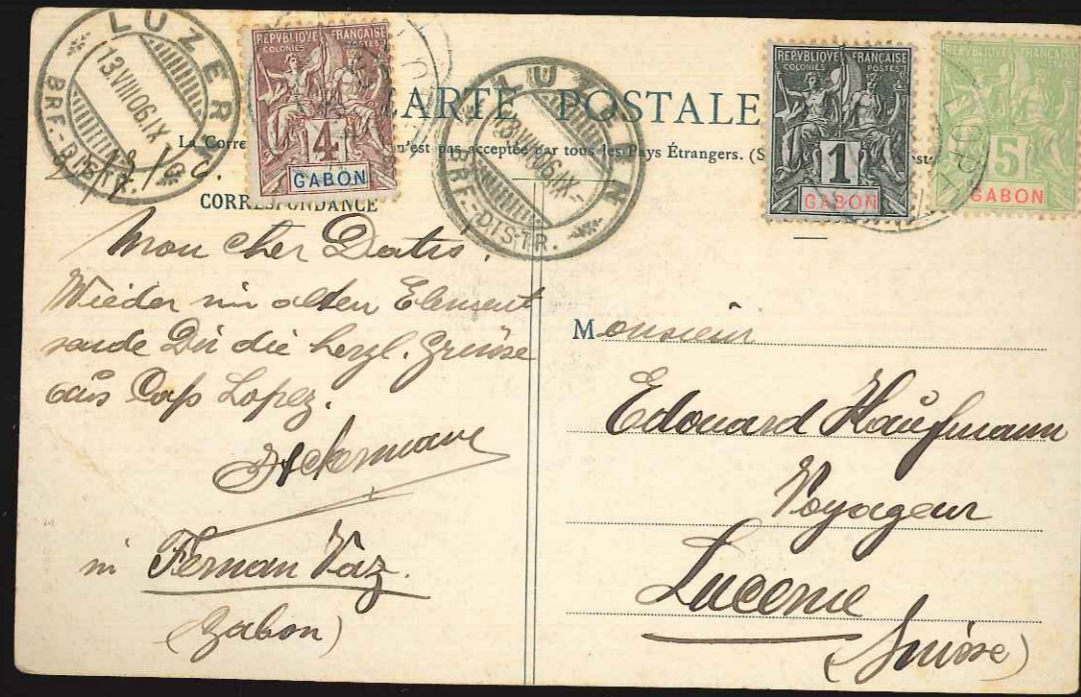 LUZERN
13.VIII.06.IX
BRF.-DISTR.
REPVBLIQVE FRANÇAISE
COLONIES POSTES
4
GABON
LUZERN
13.VIII.06.IX-
BRF.-DISTR.
REPVBLIQVE FRANÇAISE
COLONIES POSTES
1
GABON
REPVBLIQVE FRANÇAISE
COLONIES POSTES
5
GABON
CARTE POSTALE
La Corre n'est pas acceptée par tous les Pays Étrangers. (S
CORRESPONDANCE
Mon cher
Wieder im alten Element
sende Dir die herzl. Grüsse
aus Cap Lopez.
Ackermann
in Fernan Vaz.
(Gabon)
Monsieur
Edouard Kaufmann
Voyageur
Lucerne
(Suisse)